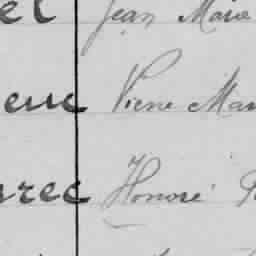 el Jean Marie
euc Pierre Mar
rec Honoré